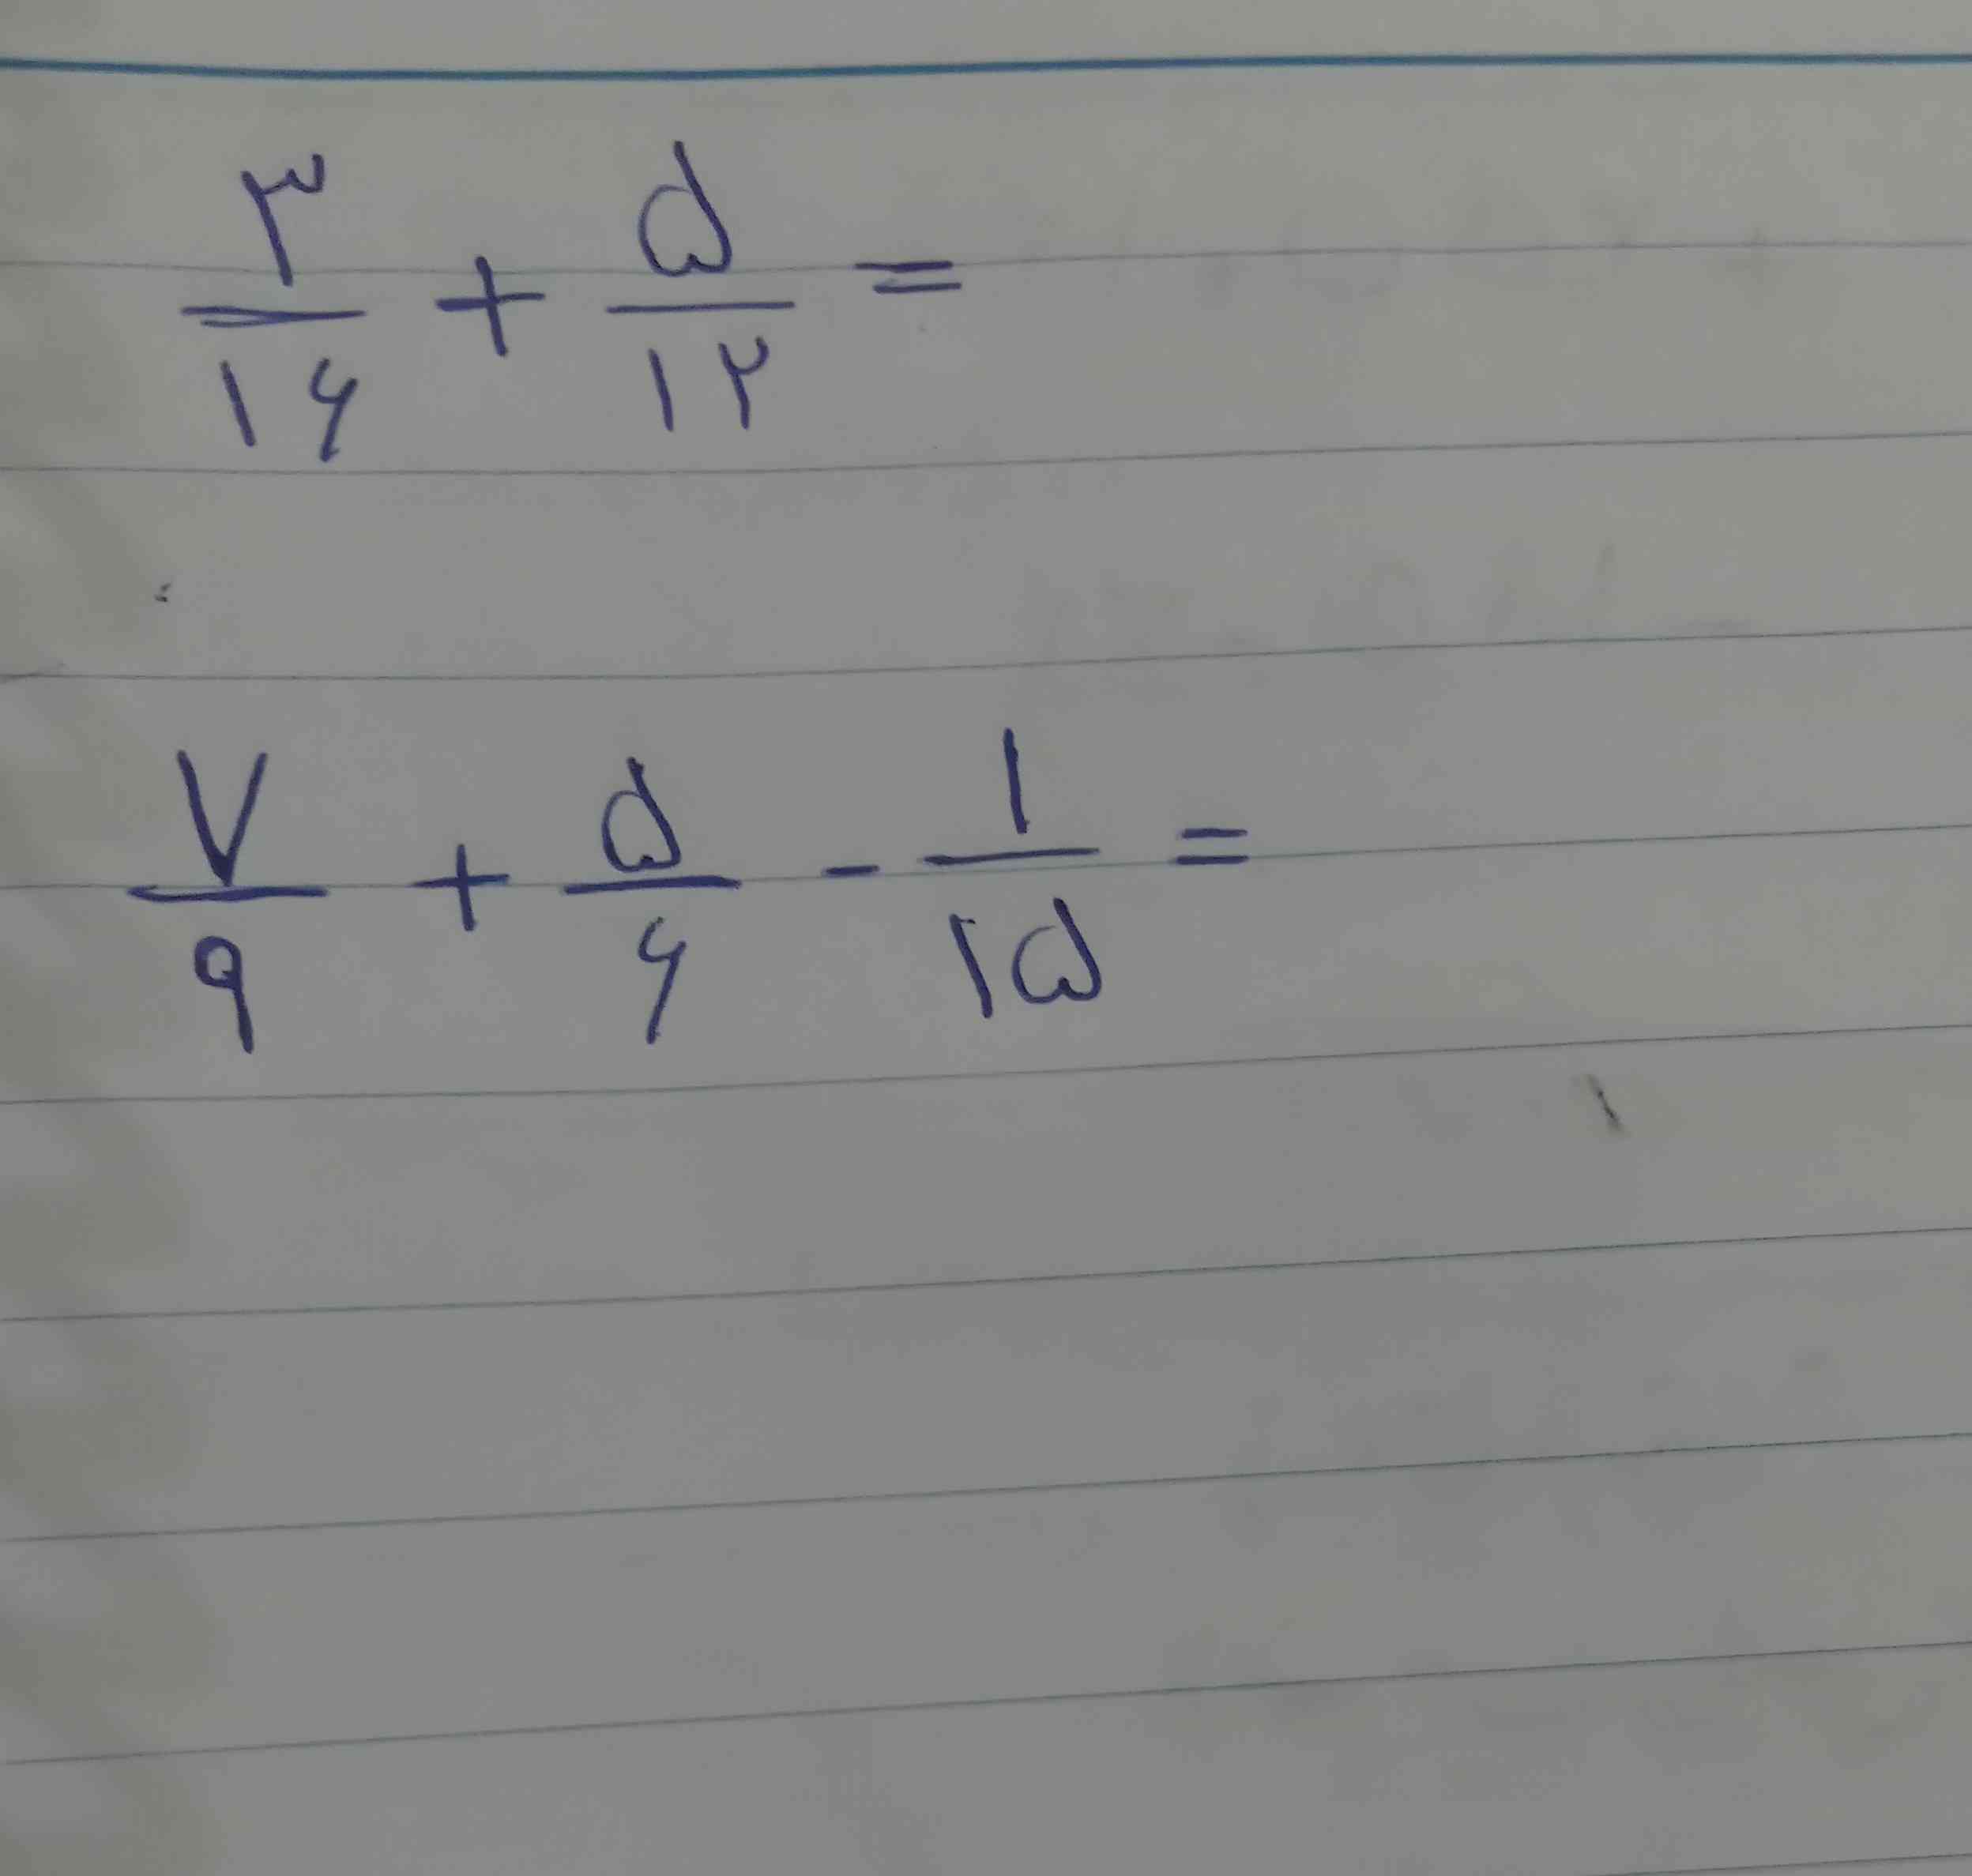 ۳/۱۶ + ۵/۱۲ =
۷/۹ + ۵/۶ - ۱/۱۵ =